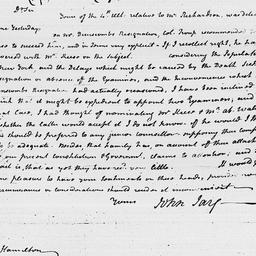 D Sir
Yours of the 4th Ult. relative to Mr. Richardson, was deliv
me Yesterday.
on Mr. Duscombs Resignation, Col. Troup recommended
to succeed him, and in terms very explicit. If I recollect right, he ha
versed with Mr. Keese on the Subject. considering the
New York and the Delays which might be caused by the Death
resignation or absence of the Examiner, and the Inconveniences which
Resignation had actually occasioned, I have been inclined
think that it might be expedient to appoint two Examiners, and
that Case, I had thought of nominating Mr. Keese &
Whether the latter would accept it I do not know. if he would I th
he should be preferred to any junior counsellor supposing their
to be adequate. Besides, that family has, on account of their attach
to our present Constitution & Government, claims to attention; and
is, that as yet they have recd. very little. It would
me pleasure to have your sentiments on these heads, provided no
circumstances or considerations should render it inconvenient
Yours John Jay
Hamilton